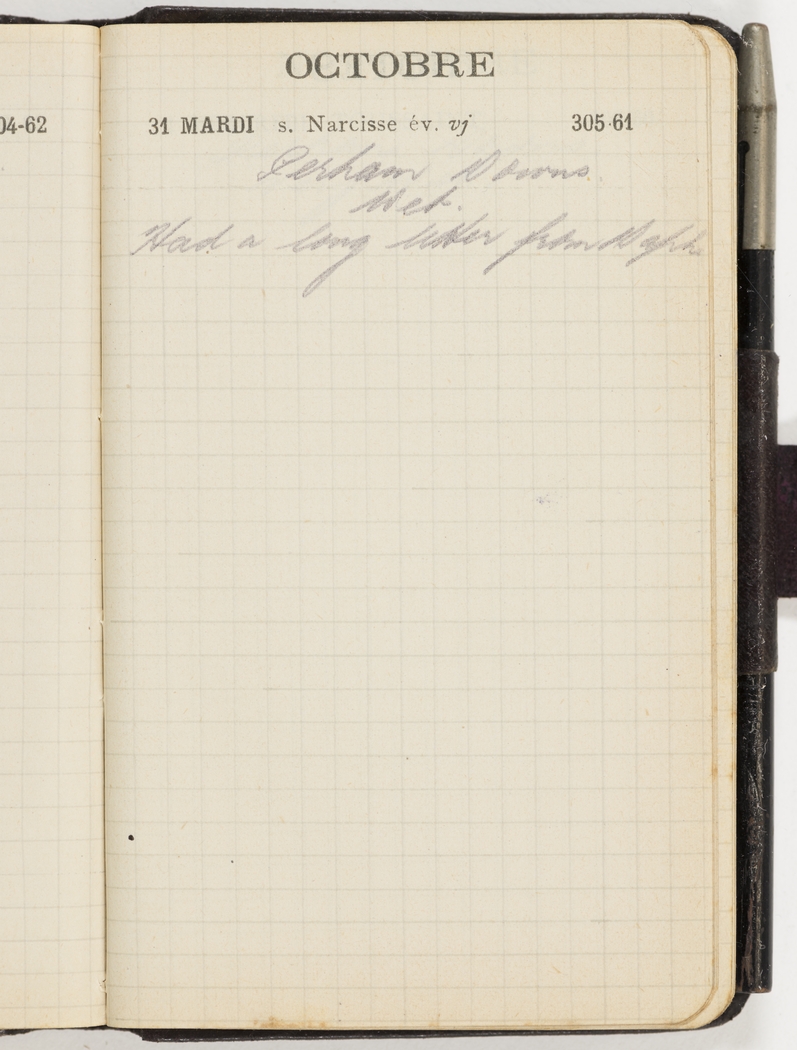 OCTOBRE
04-62
31 MARDI s. Narcisse év. vj 305-61
Perham Downs.
Wet.
Had a long letter from Daph.